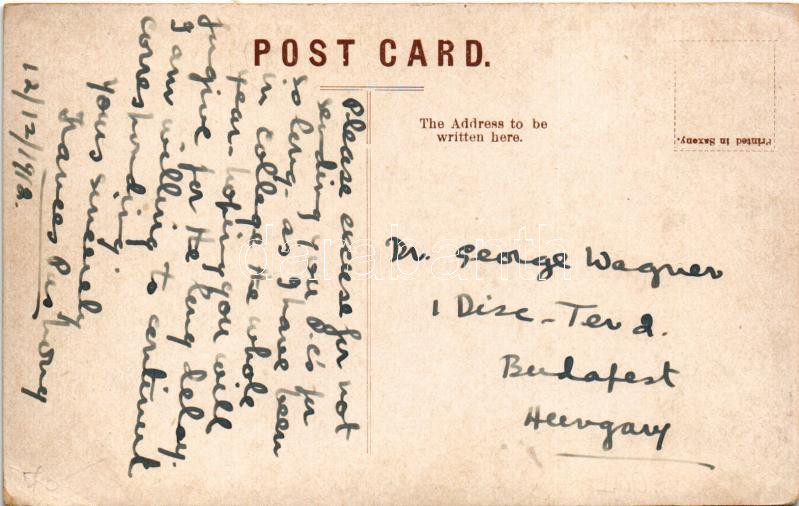 POST CARD.
The Address to be
written here.
Printed in Saxony.
Please excuse for not
sending you p.c's for
so long - as I have been
in college the whole
year - hoping you will
forgive for the long delay.
I am willing to continue
corresponding.
yours sincerely
Frances
12/12/1912.
Mr. George Wagner
1 Disc - Ter 2.
Budapest
Hungary
darabanth